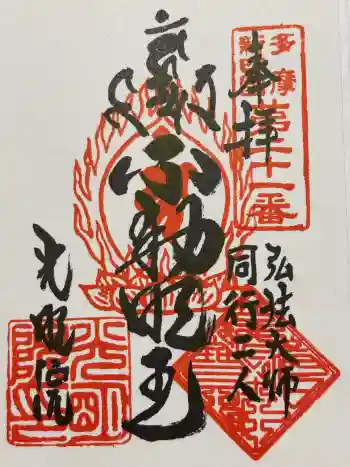 多摩
新四国
第二十一番
奉拝
不動明王
弘法大師
同行二人
光明院